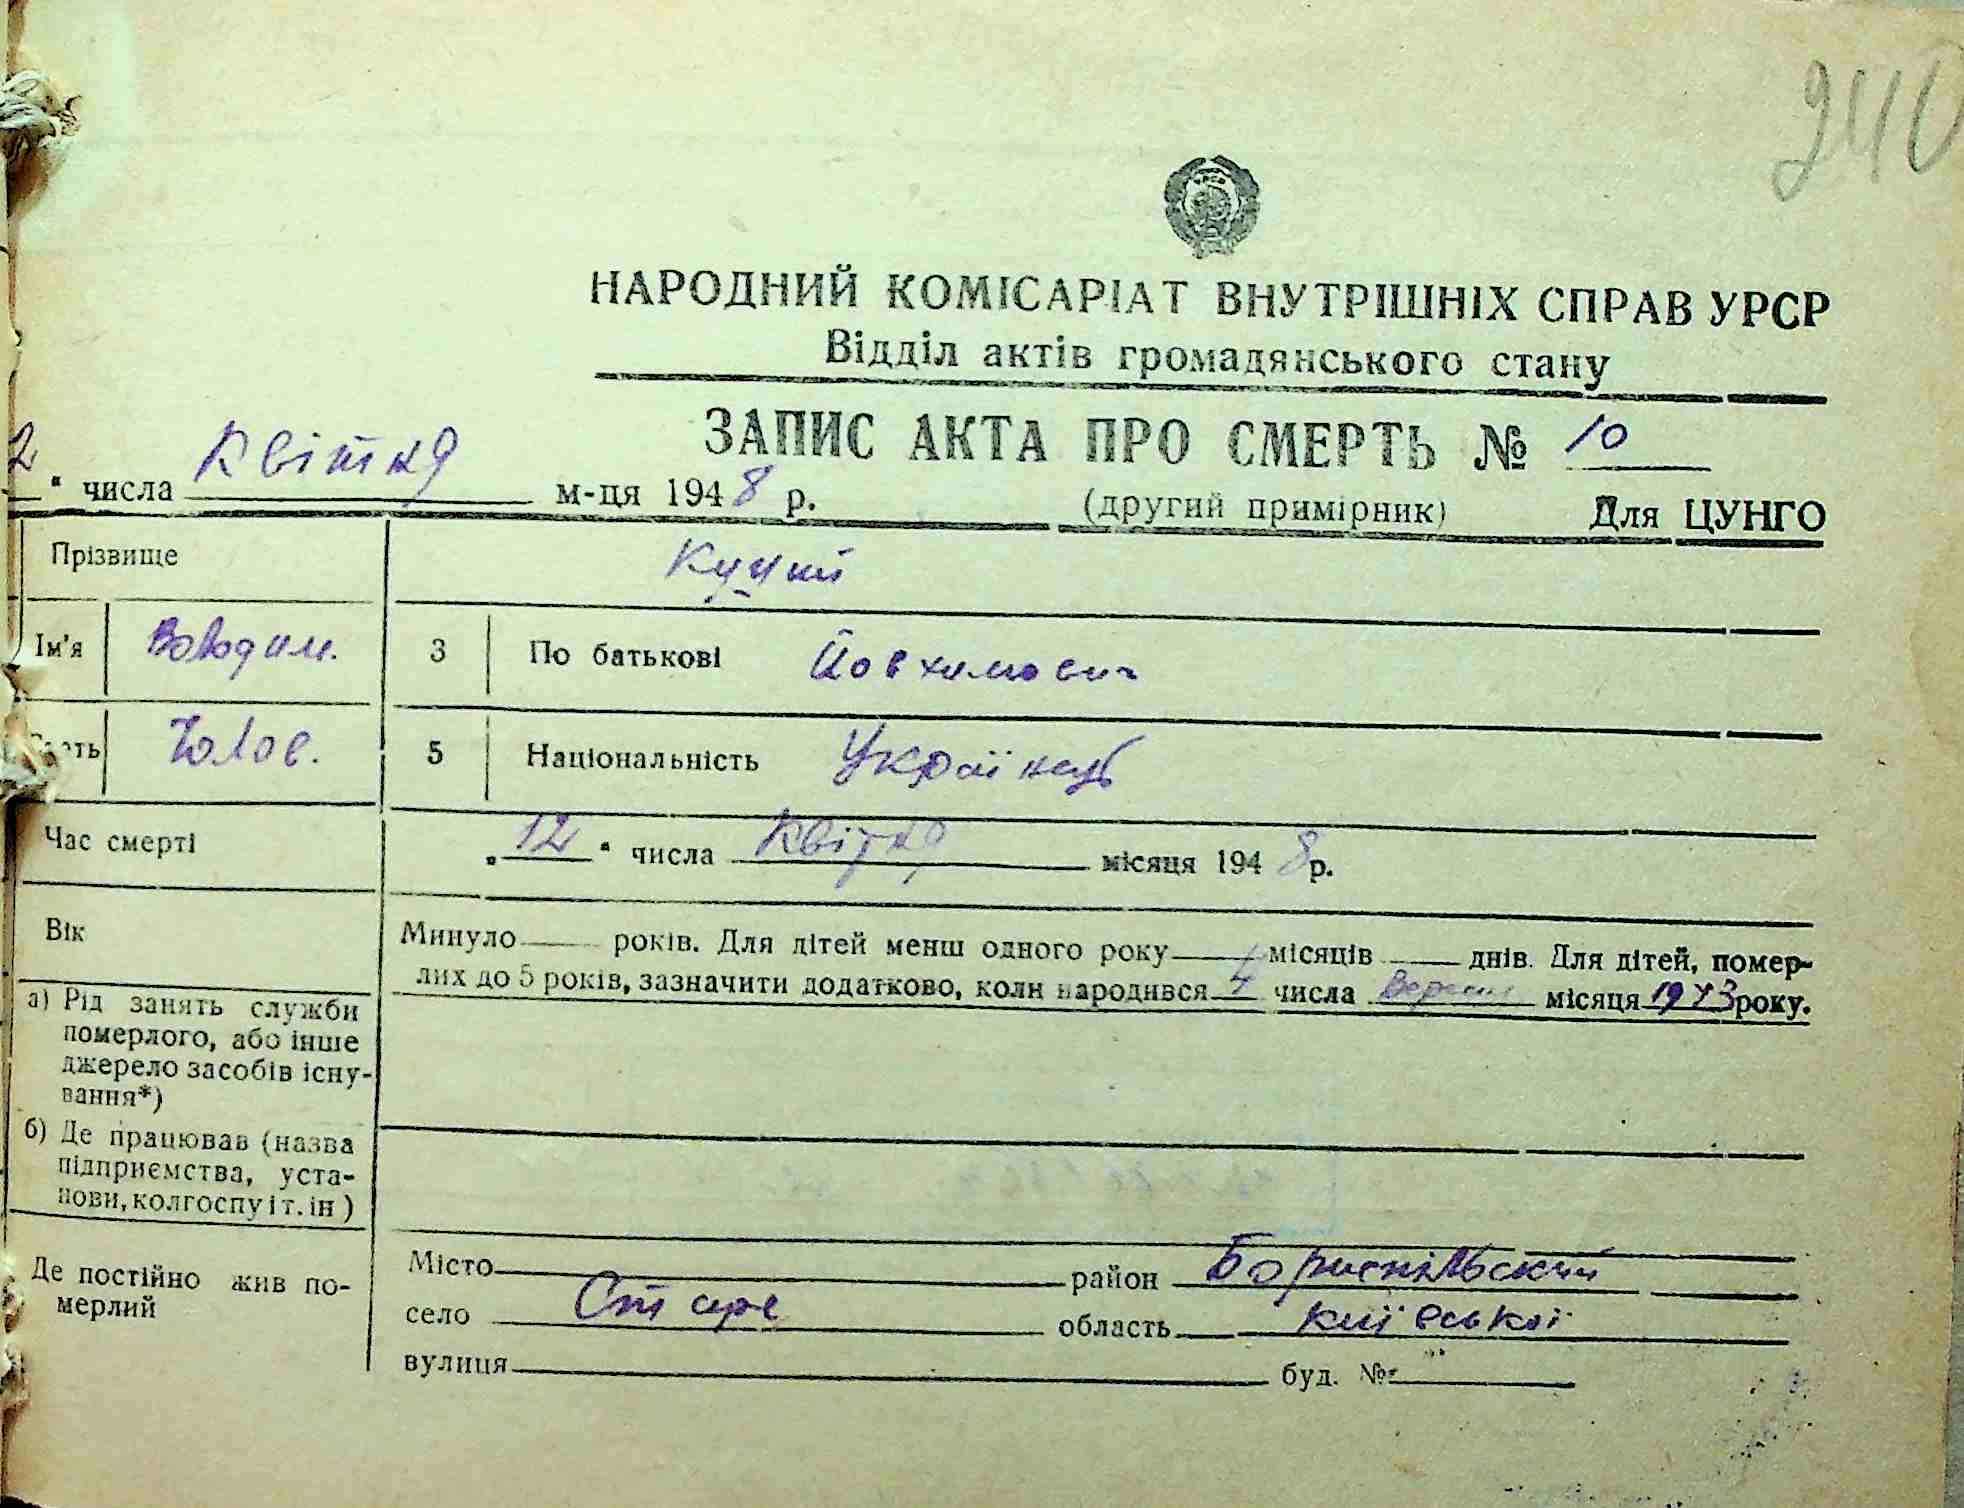 240
НАРОДНИЙ КОМІСАРІАТ ВНУТРІШНІХ СПРАВ УРСР
Відділ актів громадянського стану
ЗАПИС АКТА ПРО СМЕРТЬ № 10
2 " числа Квітня м-ця 1948 р. (другий примірник) Для ЦУНГО
Прізвище Куций
Ім'я Володим. 3 По батькові Йовхимович
Чолов. 5 Національність Українець
Час смерті „12" числа Квітня місяця 1948р.
Вік Минуло років. Для дітей менш одного року місяців днів. Для дітей, помер-
лих до 5 років, зазначити додатково, коли народився 4 числа Вересня місяця 1943 року.
а) Рід занять служби
померлого, або інше
джерело засобів існу-
вання*)
б) Де працював (назва
підприємства, уста-
нови, колгоспу і т. ін)
Де постійно жив по-
мерлий
Місто район Бориспільський
село Старе область Київської
вулиця буд. №